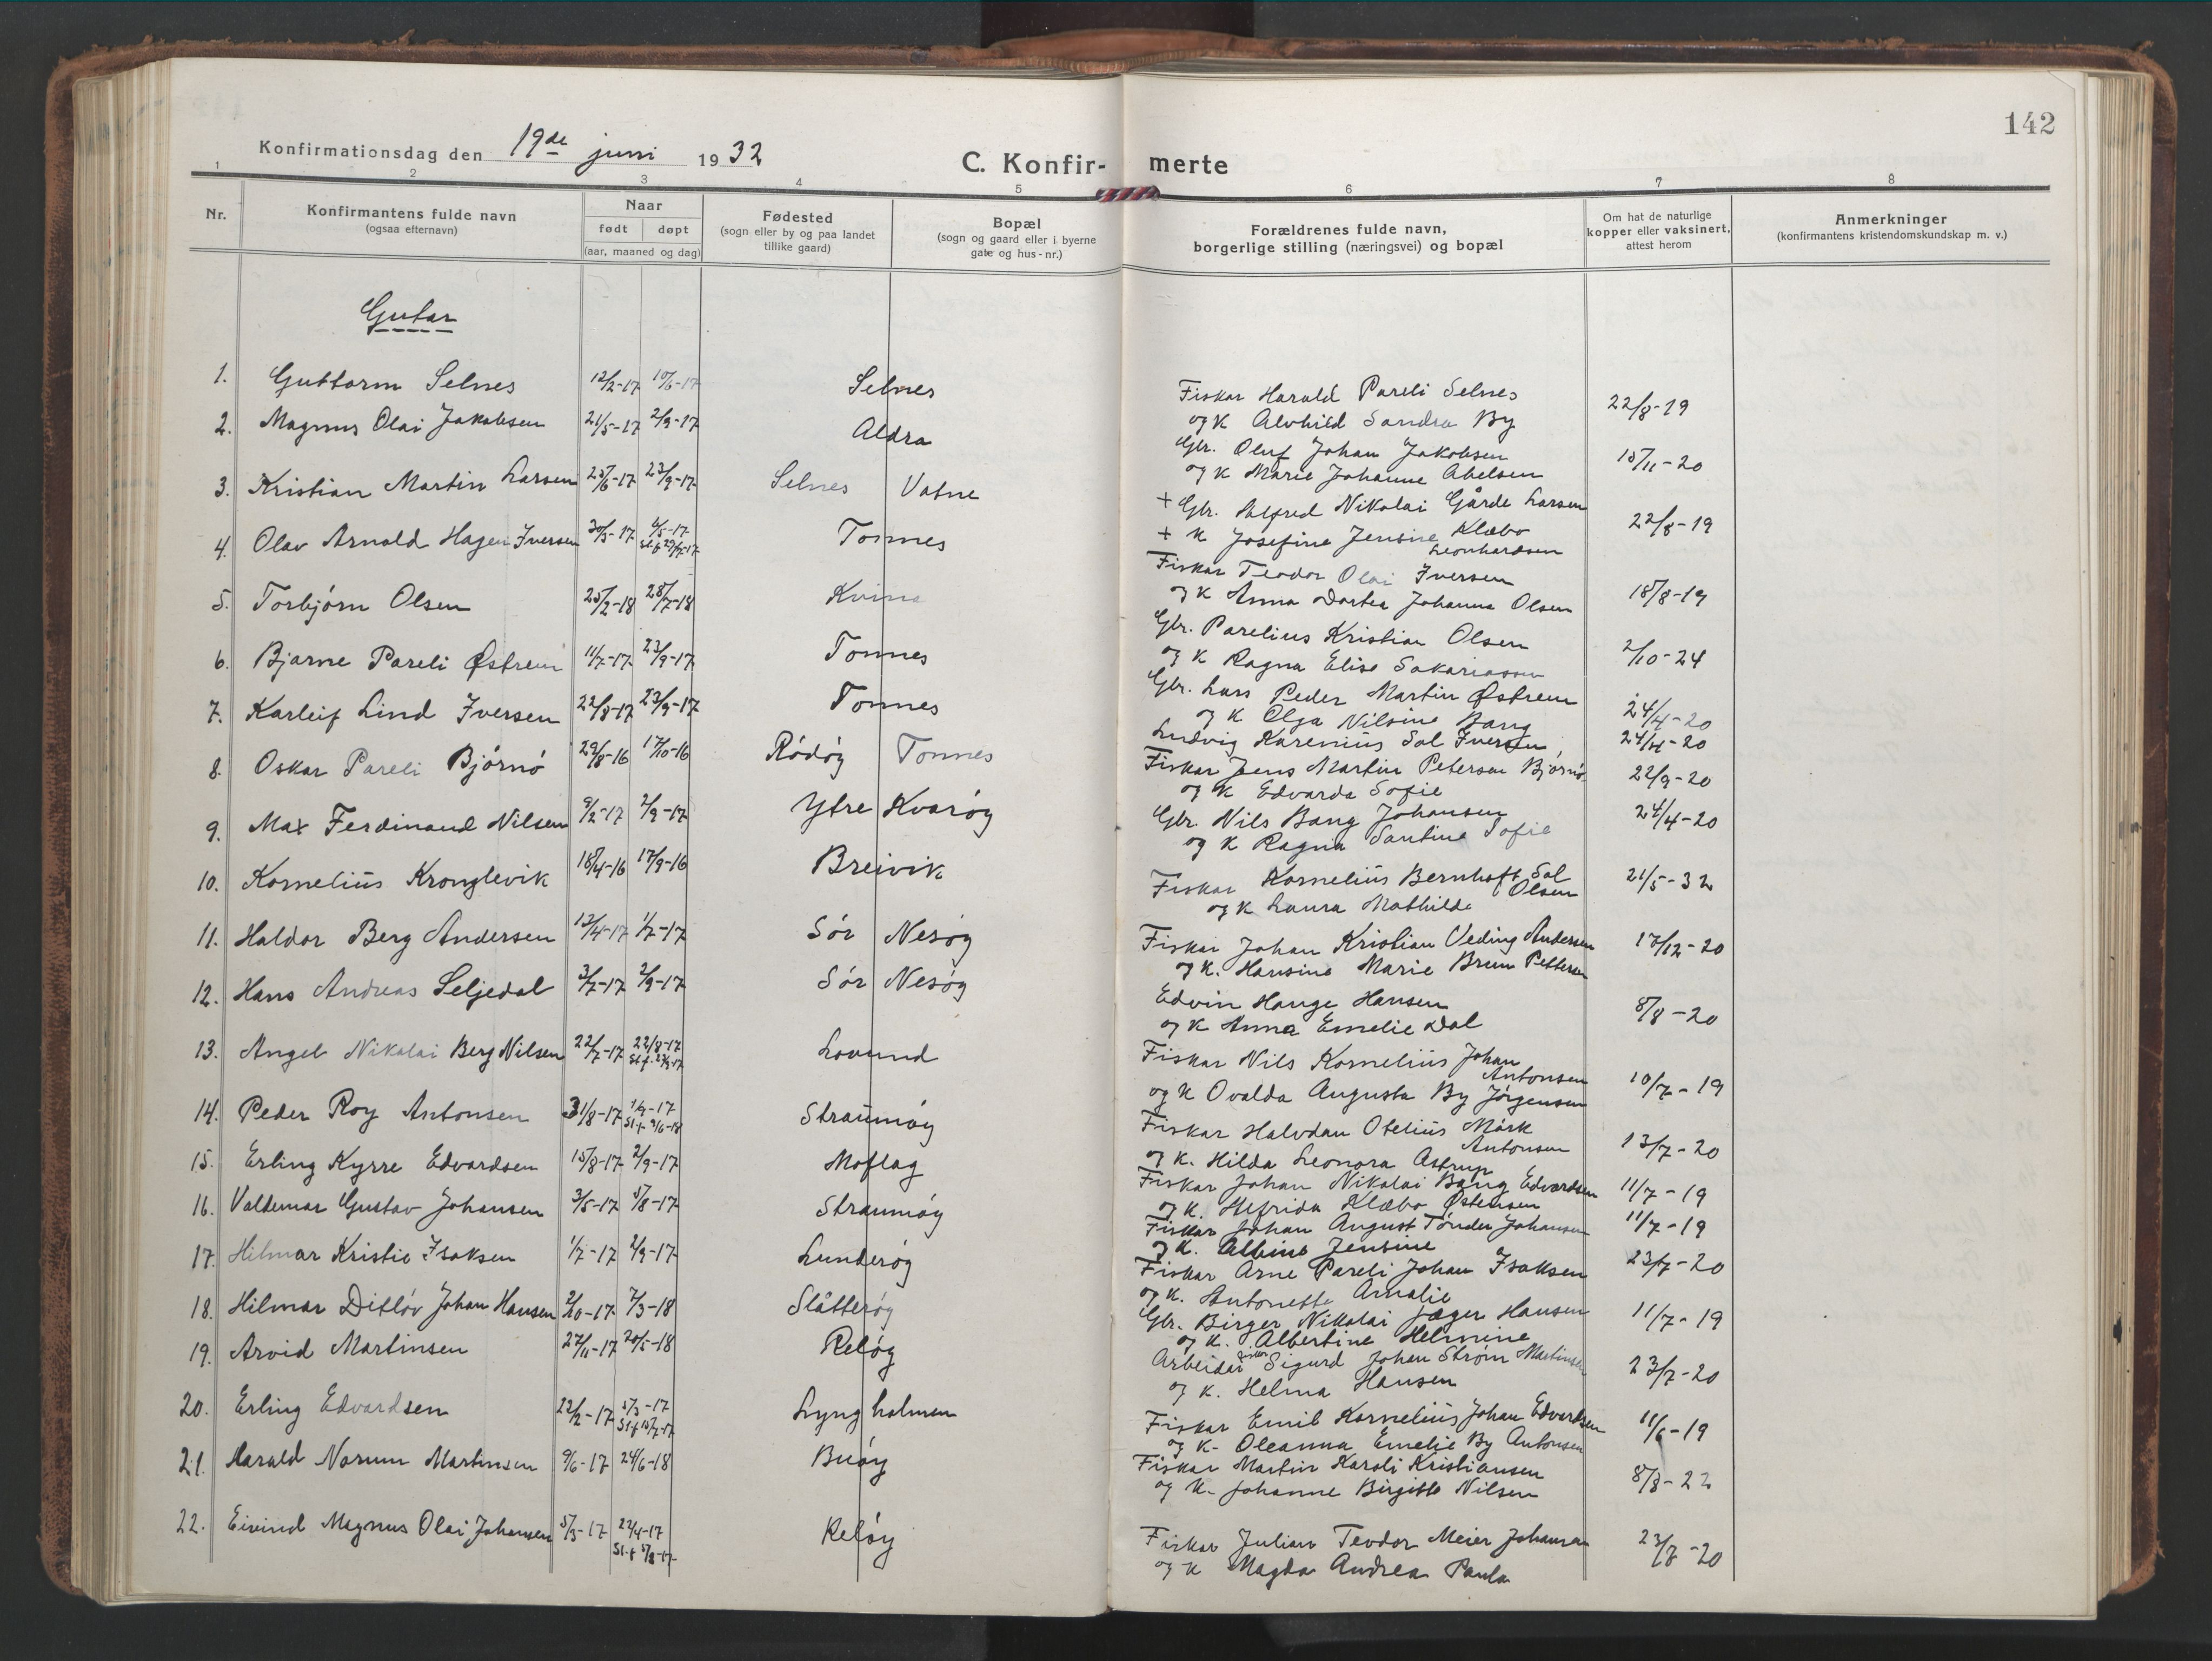 142
Konfirmationsdag den 19de juni 1932
C. Konfirmerte
1 2 3 4 5 6 7 8
Nr.
Konfirmantens fulde navn
(ogsaa efternavn)
Naar
født døpt
(aar, maaned og dag)
Fødested
(sogn eller by og paa landet
tillike gaard)
Bopæl
(sogn og gaard eller i byerne
gate og hus-nr.)
Forældrenes fulde navn,
borgerlige stilling (næringsvei) og bopæl
Om hat de naturlige
kopper eller vaksinert,
attest herom
Anmerkninger
(konfirmantens kristendomskundskap m. v.)
Gutar
1. Guttorm Selnes 12/2-17 10/6-17 Selnes
Fiskar Harald Pareli Selnes 22/8-19
og K Alvhild Sandra By
2. Magnus Olai Jakobsen 21/5-17 2/9-17 Aldra
Gbr. Oluf Johan Jakobsen 15/11-20
og K Marie Johanne Abelsen
3. Kristian Martin Larsen 25/6-17 23/9-17 Selnes Vatne
+ Gbr. Alfred Nikolai Gårde Larsen 22/8-19
+ K Josefine Jensine Klæbo
Leonhardsen
4. Olav Arnold Hagen Iversen 30/3-17 6/5-17 Tonnes
St.f 29/7-17
Fiskar Teodor Olai Iversen 18/8-19
og K Anna Dortea Johanna Olsen
5. Torbjórn Olsen 25/2-18 28/7-18 Kvina
Gbr. Parelius Kristian Olsen 2/10-24
og K Ragna Elise Sakariassen
6. Bjarne Pareli Østrem 11/7-17 23/9-17 Tonnes
Gbr. Lars Peder Martin Østrem 24/4-20
og K Olga Nilsine Bang
7. Karleif Lind Iversen 22/8-17 23/9-17 Tonnes
Ludvig Karenius Sol Iversen, 24/4-20
8. Oskar Pareli Bjórnó 29/8-16 17/10-16 Ródóy Tonnes
Fiskar Jens Martin Petersen Bjórnó 22/9-20
og K Edvarda Sofie
9. Max Ferdinand Nilsen 9/2-17 2/9-17 Ytre Kvaróy
Gbr. Nils Bang Johansen 24/4-20
og K Ragna Santine Sofie
10. Kornelius Kronglevik 18/4-16 17/9-16 Breivik
Fiskar Kornelius Bernhoft Sol 21/5-32
Olsen
og K Laura Mathilde
11. Haldor Berg Andersen 12/4-17 1/7-17 Sór Nesóy
Fiskar Johan Kristian Veding Andersen 17/12-20
og K. Hansine Marie Brun Pettersen
12. Hans Andreas Seljedal 3/7-17 2/9-17 Sór Nesóy
Edvin Hauge Hansen 8/8-20
og K Anna Emelie Dal
13. Angel Nikolai Berg Nilsen 22/7-17 22/8-17 Lovund
Fiskar Nils Kornelius Johan
Antonsen 10/7-19
og K Ovalda Augusta By Jórgensen
14. Peder Roy Antonsen 31/8-17 Straumóy
Fiskar Halvdan Otelius Mórk
Antonsen 13/7-20
og K. Hilda Leonora Astrup
15. Erling Kyrre Edvardsen 15/8-17 2/9-17 Moflag
Fiskar Johan Nikolai Bang Edvardsen 11/7-19
og K. Hefrida Klæbo Østensen
16. Valdemar Gustav Johansen 3/5-17 5/8-17 Straumóy
Fiskar Johan August Tónder Johansen 11/7-19
og K. Albine Jensine
17. Hilmar Kristie Isaksen 1/7-17 2/9-17 Lunderóy
Fiskar Arne Pareli Johan Isaksen 23/7-20
og K. Antonette Amalie
18. Hilmar Ditlóv Johan Hansen 2/10-17 7/3-18 Slåtteróy
Gbr. Birger Nikolai Jæger Hansen 11/7-19
og K. Albertine Helmine
19. Arvid Martinsen 27/11-17 20/5-18 Relóy
Arbeidar Sigurd Johan Strøm Martinsen 23/7-20
og K. Helma Hansen
20. Erling Edvardsen 22/2-17 5/3-17 Lyngholmen
St.f 15/7-17
Fiskar Emil Kornelius Johan Edvardsen 11/6-19
og K- Oleanna Emelie By Antonsen
21. Harald Norum Martinsen 9/6-17 24/6-18 Buóy
Fiskar Martin Karoli Kristiansen 8/8-22
og K- Johanne Birgitte Nilsen
22. Eivind Magnus Olai Johansen 5/3-17 22/4-17 Relóy
St.f 5/8-17
Fiskar Julian Teodor Meier Johansen 23/7-20
og K Magda Andrea Paula